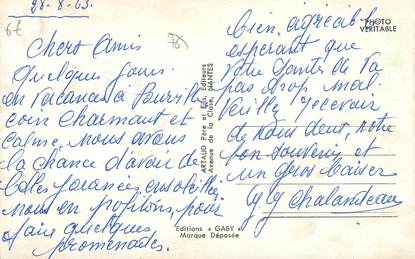 28-8-63.
6€
76
Chers Amis
Quelques jours
en vacances à
coin charmant et
calme, nous avons
la chance d'avoir de
belles journées, ensoleillées
nous en profitons, pour
faire quelques
promenades.
ARTAUD Père et Fils, Editeurs
Avenue de la Close, NANTES
Editions « GABY »
Marque Déposée
PHOTO
VERITABLE
bien agréable
esperant que
votre santée de va
pas trop mal.
Veillez recevoir
de nous deux, notre
bon souvenir et
un gros baiser
Chalandeau